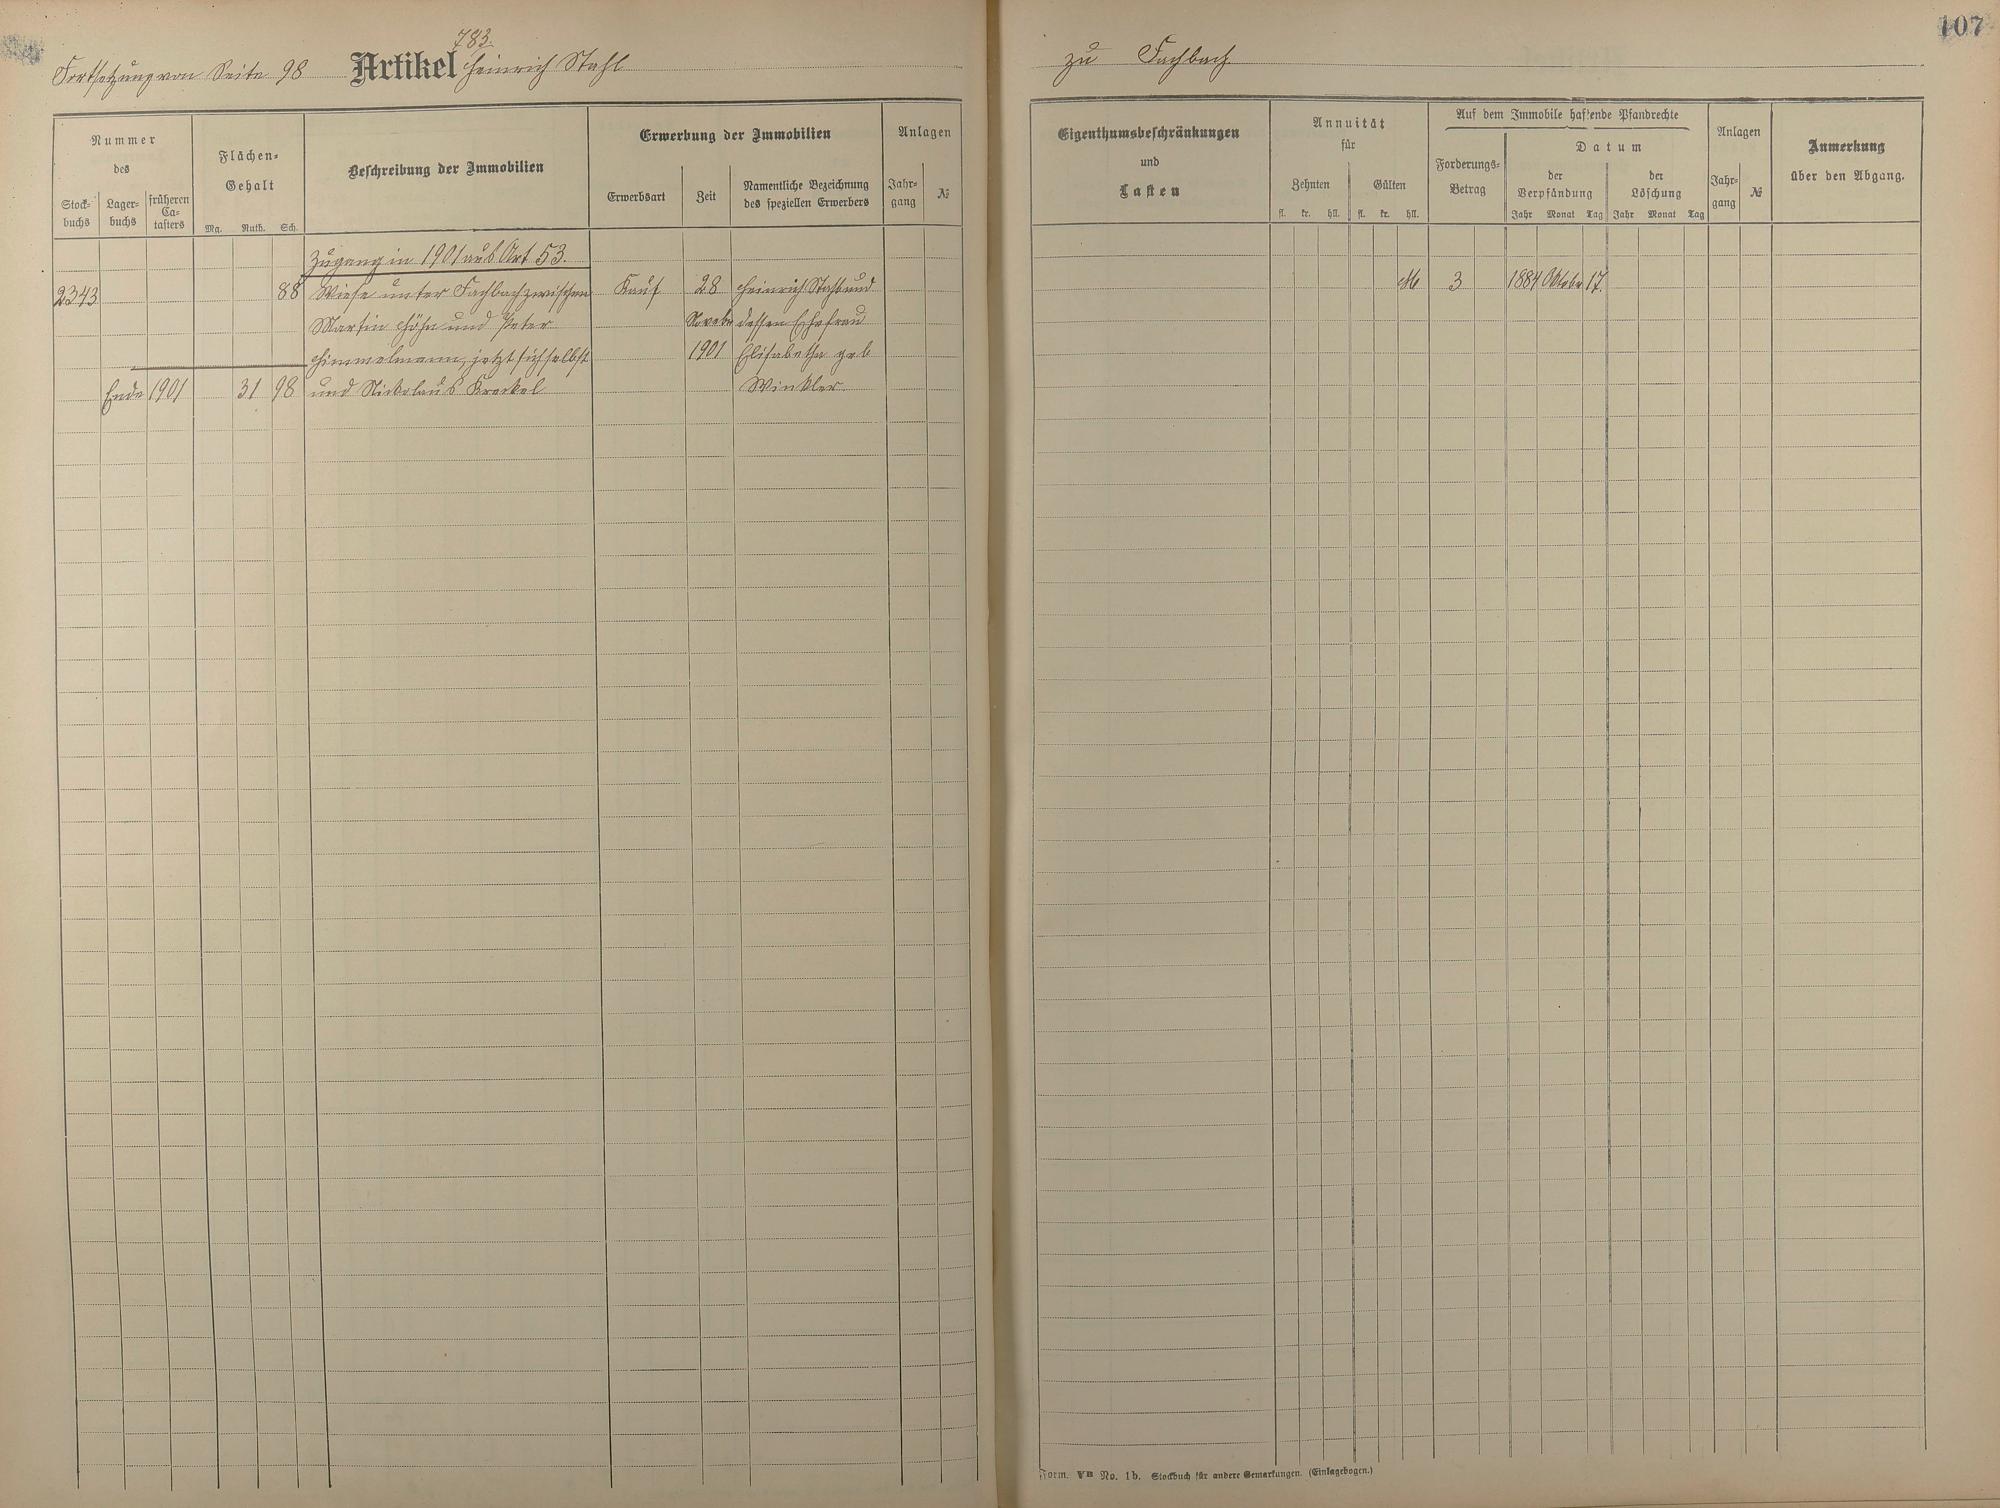 107
783.
Fortsetzung von Seite 98 Artikel Heinrich Stahl
zu Fachbach
Nummer
des
Stock-
buchs
Lager-
buchs
früheren
Ca-
tasters
Flächen-
Gehalt
Mg. Ruth. Sch.
Beschreibung der Immobilien
Erwerbung der Immobilien
Erwerbsart
Zeit
Namentliche Bezeichnung
des speziellen Erwerbers
Anlagen
Jahr-
gang
№
Zugang in 1901 aus Art 53.
2343 88 Wiese unter Fachbach zwischen Kauf 28 Heinrich Stahl und
Martin Höhn und Peter Novebr dessen Ehefrau
Himmelmann, jetzt sich selbst 1901 Elisabetha geb
Ende 1901 31 98 und Nickolaus Kreckel Winkler
Eigenthumsbeschränkungen
und
Lasten
Annuität
für
Zehnten
Gülten
fl. kr. hll. fl. kr. hll.
Auf dem Immobile haftende Pfandrechte
Forderungs-
Betrag
Datum
der
Verpfändung
Jahr Monat Tag
der
Löschung
Jahr Monat Tag
Anlagen
Jahr-
gang
№
Anmerkung
über den Abgang.
M 3 1884 Oktobr 17.
Form. VB No. 1b. Stockbuch für andere Gemarkungen. (Einlagebogen.)